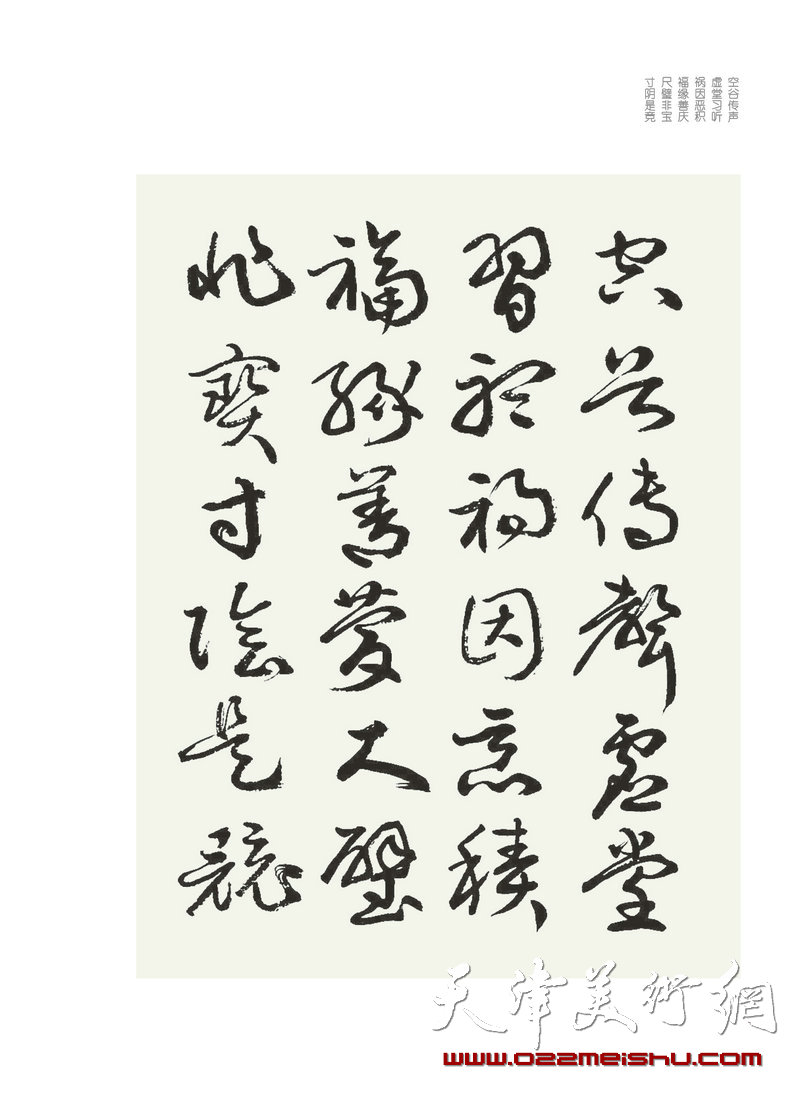 空谷传声
虚堂习听
祸因恶积
福缘善庆
尺璧非宝
寸阴是竞
空谷傳聲虛堂
習聽禍因惡積
福緣善慶尺璧
非寶寸陰是競
天津美術網
www.022meishu.com